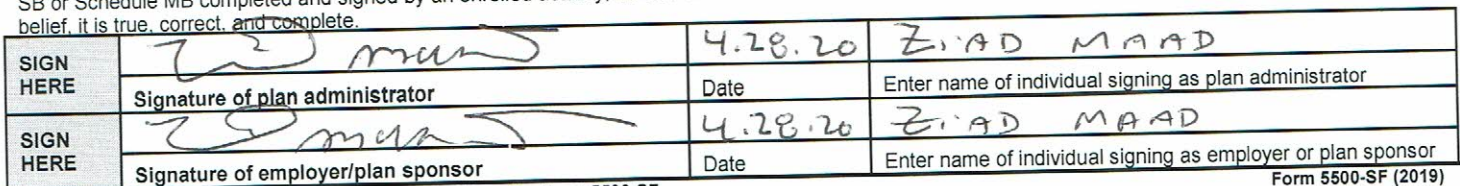 SB or Schedule MB completed and signed by an enrolled
belief, it is true, correct, and complete.
SIGN HERE 4.28.20 ZiAD MAAD
Signature of plan administrator Date Enter name of individual signing as plan administrator
SIGN HERE 4.28.20 ZiAD MAAD
Signature of employer/plan sponsor Date Enter name of individual signing as employer or plan sponsor
Form 5500-SF (2019)